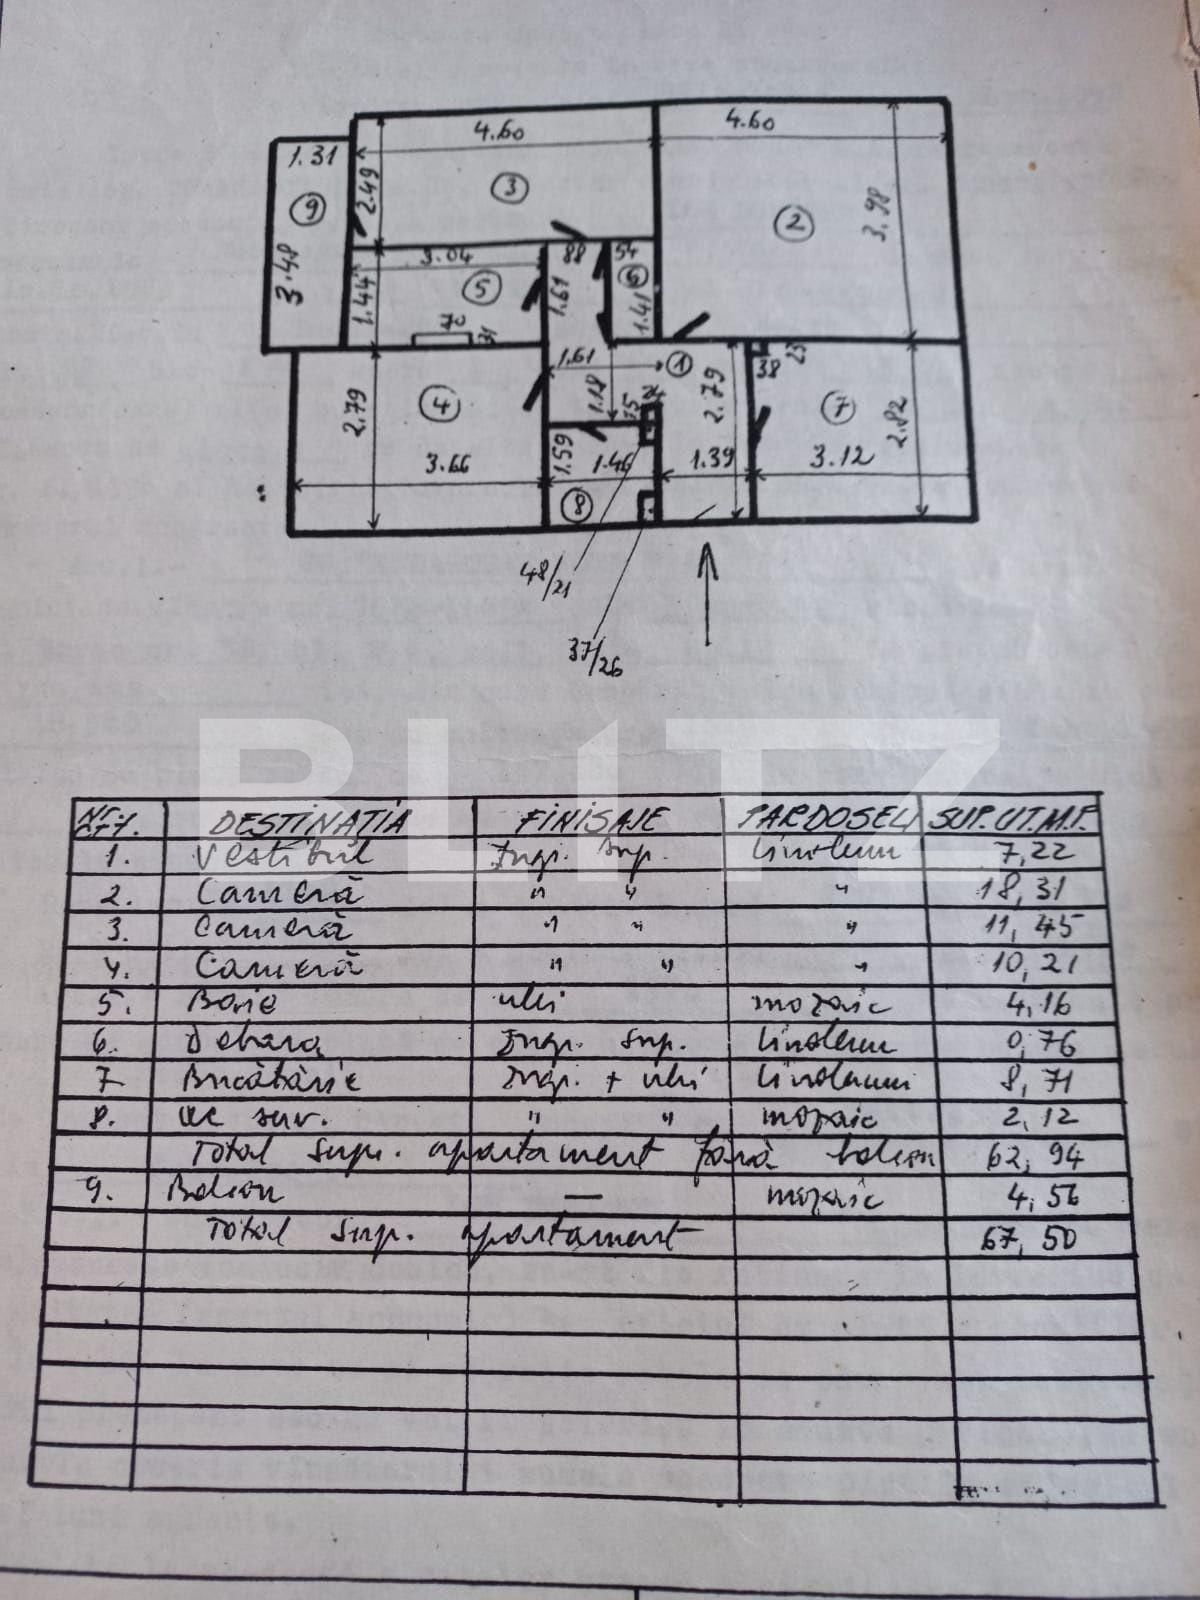 4.60 4.60
1.31
9
2.49
3
2
3.98
3.48
3.04
88
54
5
6
1.44
1.61
1.41
70
31
1.61
1
38
23
2.79
4
1.18
2.79
7
2.82
3.66
1.59
1.46
1.39
3.12
8
48/21
37/26
BLITZ
NR. CRT. DESTINAȚIA FINISAJE PARDOSELI SUP.UT.M.P.
1. Vestibul Zugr. sup. linoleum 7,22
2. Cameră " " " 18,31
3. Cameră " " " 11,45
4. Cameră " " " 10,21
5. Baie ulei mozaic 4,16
6. Debara Zugr. sup. linoleum 0,76
7 Bucătărie Zugr. + ulei linoleum 8,71
8. WC serv. " " mozaic 2,12
Total supr. apartament fără balcon 62,94
9. Balcon — mozaic 4,56
Total supr. apartament 67,50